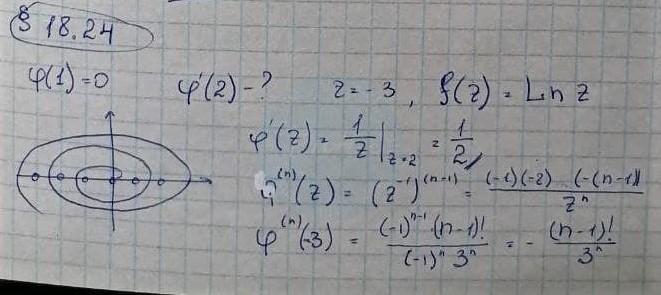 § 18.24
φ(1)=0 φ'(2) - ? z = - 3 , f(z) = Ln z
φ'(z) = 1/z |z=2 = 1/2
φ^(n)(z) = (z^-1)^(n-1) = (-1)(-2) … (-(n-1))/z^n
φ^(n)(-3) = (-1)^(n-1)·(n-1)!/(-1)^n 3^n = - (n-1)!/3^n